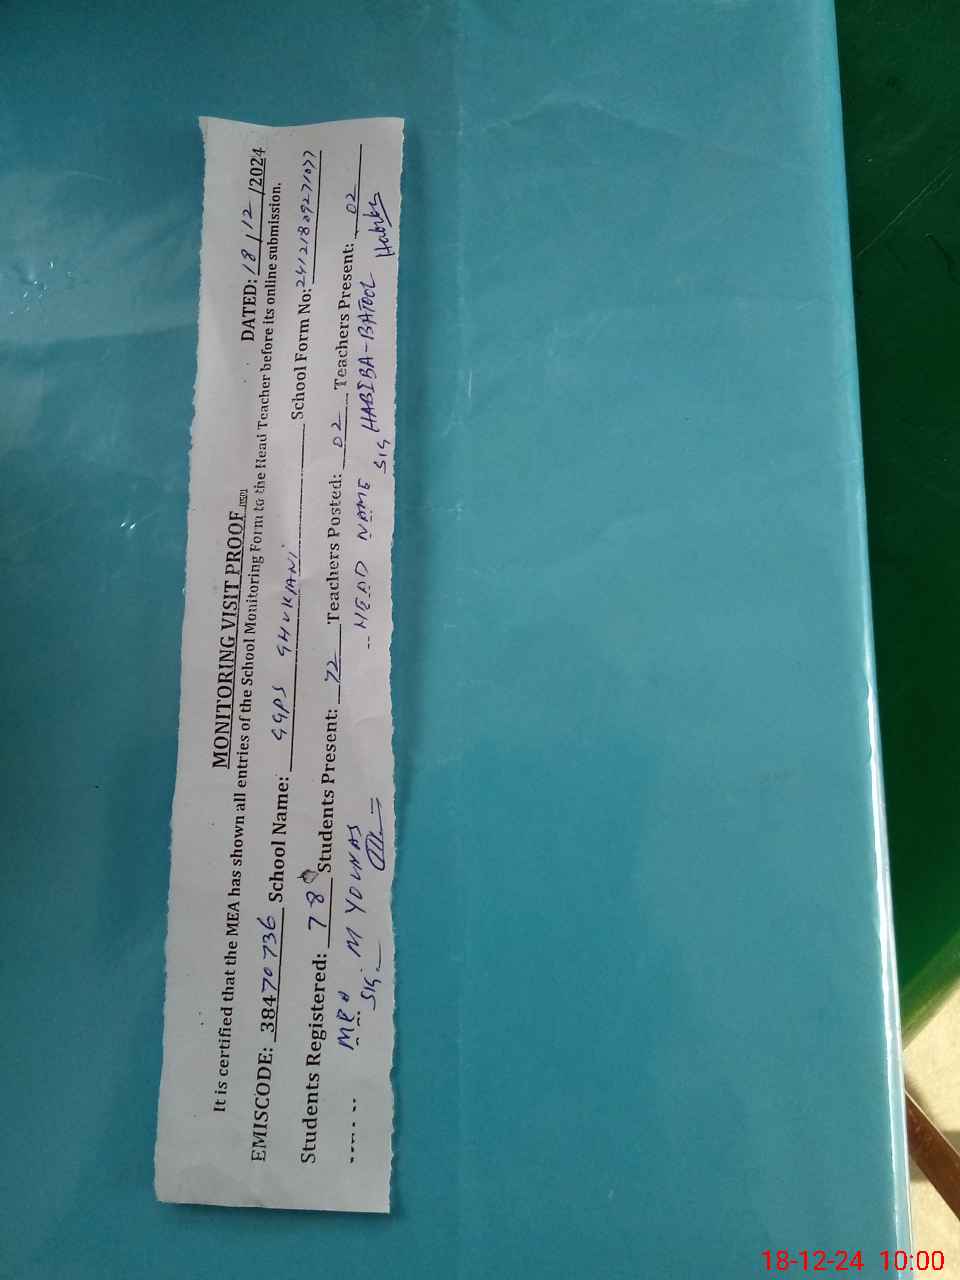 MONITORING VISIT PROOF DATED: 18/12/2024
It is certified that the MEA has shown all entries of the School Monitoring Form to the Head Teacher before its online submission.
EMISCODE: 38470736 School Name: GGPS GHUKIANI School Form No: 24121809271077
Students Registered: 78 Students Present: 72 Teachers Posted: 02 Teachers Present: 02
M YOUNAS HEAD NAME HABIBA-BATOOL
Sig. Sig Habiba
18-12-24 10:00